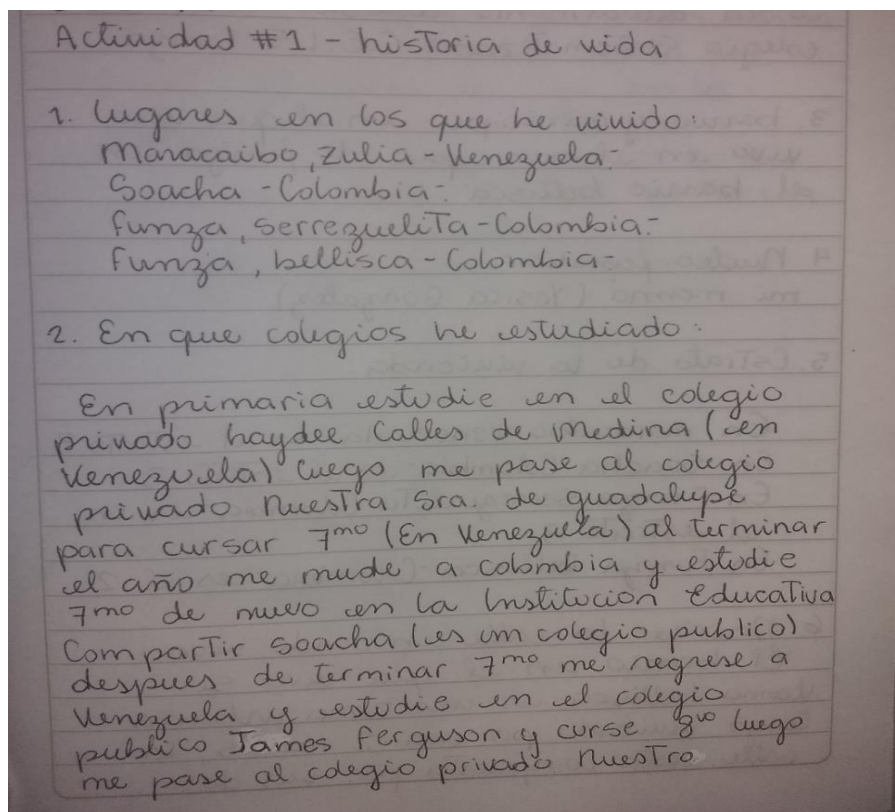 Actividad #1 - historia de vida
1. lugares en los que he vivido:
Maracaibo, Zulia - Venezuela-
Soacha - Colombia-
funza, serrezuelita - Colombia-
funza, bellisca - Colombia-
2. En que colegios he estudiado:
En primaria estudie en el colegio
privado haydee Calles de Medina (en
Venezuela) luego me pase al colegio
privado Nuestra Sra. de guadalupe
para cursar 7mo (En Venezuela) al terminar
el año me mude a colombia y estudie
7mo de nuevo en la Institución Educativa
Compartir Soacha (es un colegio publico)
despues de terminar 7mo me regrese a
Venezuela y estudie en el colegio
publico James ferguson y curse 8vo luego
me pase al colegio privado Nuestro